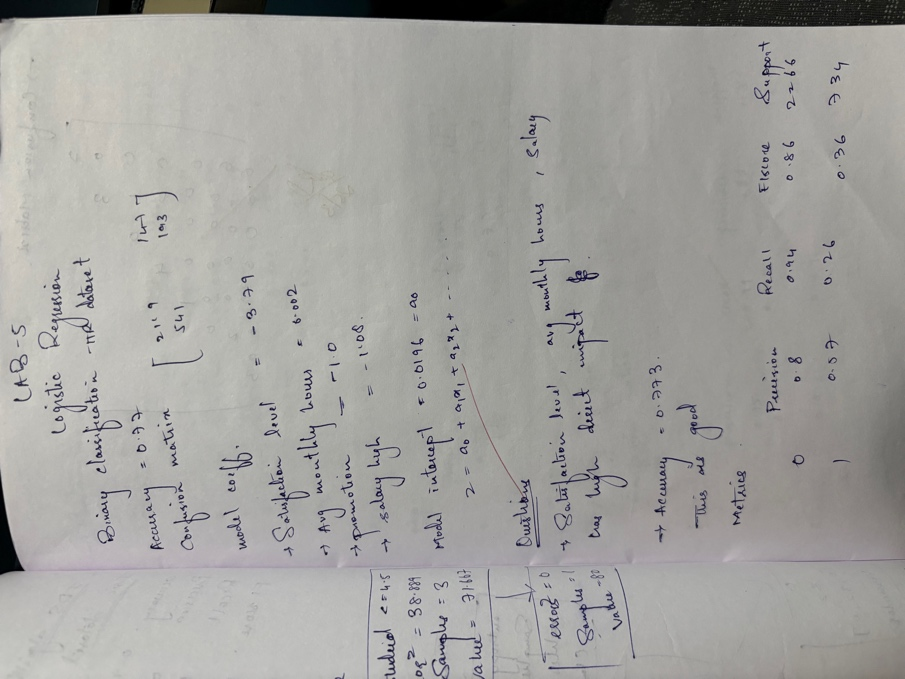 LAB-5
Logistic Regression
Binary classification - HR dataset
Accuracy = 0.77
Confusion matrix [ 2119 147
541 193 ]
model coeff.
→ Satisfaction level = -3.79
→ Avg monthly hours = 6.002
→ promotion = -1.0
→ salary high = -1.08.
Model intercept = 0.0196 = a0
z = a0 + a1x1 + a2x2 + .....
Questions
→ Satisfaction level, avg monthly hours, salary
has high direct impact
→ Accuracy = 0.773.
This is good
Metrics
Precision Recall F1score Support
0 0.8 0.94 0.86 2266
1 0.57 0.26 0.36 734
= 4.5
= 38.889
Samples = 3
value = 71.667
error² = 0
Samples = 1
Value = 80